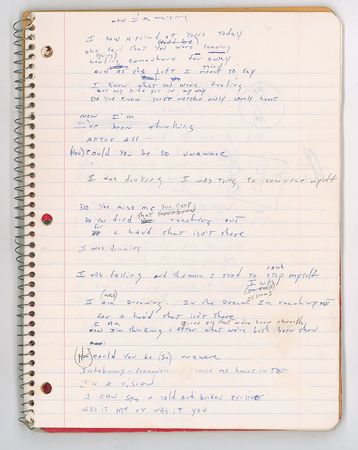 now I'm waking
I saw a friend of yours today
she said that you were leaving
going somewhere far away
and as she left I meant to say
I knew that you were trying
but my pride got in my way
Do you know you're not the only lonely heart
NOW I'm
I've been thinking
AFTER All
(How) Could you be so unaware
I was drinking I was trying to convince myself
DO You miss me
Do you find that you keep reaching out
for a hand that isn't there
I was dreaming
I was falling and the more I tried to catch myself
I (was) Dreaming. In the Dream I'm reaching out
for a hand that isn't there
I Am
now I'm thinking - after what we've both been thru
(How) could you be (so) unaware
IN A vision
I CAN see a cold and broken
WAS it me or was it you